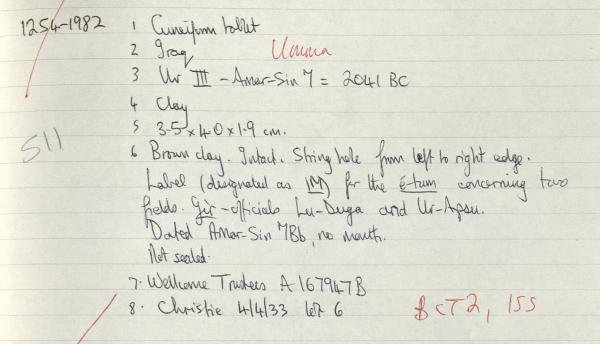 1254-1982 1 Cuneiform tablet
2 Iraq Umma
3 Ur III - Amar-Sin 7 = 2041 BC
4 Clay
5 3.5 x 4.0 x 1.9 cm.
511
6 Brown clay. Intact. String hole from left to right edge.
Label (designated as IM) for the é-tum concerning two
fields. Gir-officials Lu-Duga and Ur-Apsu.
Dated Amar-Sin 7Bb, no month.
Not sealed.
7. Wellcome Trustees A 167947B
8. Christie 4/4/33 lot 6 BCT2, 155